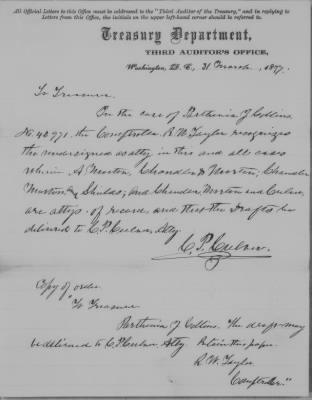 All Official Letters to this Office must be addressed to the "Third Auditor of the Treasury," and in replying to
Letters from this Office, the initials on the upper left-hand corner should be referred to.
Treasury Department,
THIRD AUDITOR'S OFFICE,
Washington, D. C., 31 March, 1877.
To Treasurer.
In the case of Parthenia J Collins
No. 42971, the Comptroller R. W. Taylor recognizes
the undersigned as atty in this and all cases
wherein A Morton, Chandler & Morton; Chandler
Morton & Shields; and Chandler, Morton and
are attys. of record, and that the Drafts be
delivered to C. P. Atty.
C. P.
Copy of order.
"To Treasurer
Parthenia J Collins. The may
be delivered to C. P. Atty. Retain this paper.
R. W. Taylor
Comptroller."